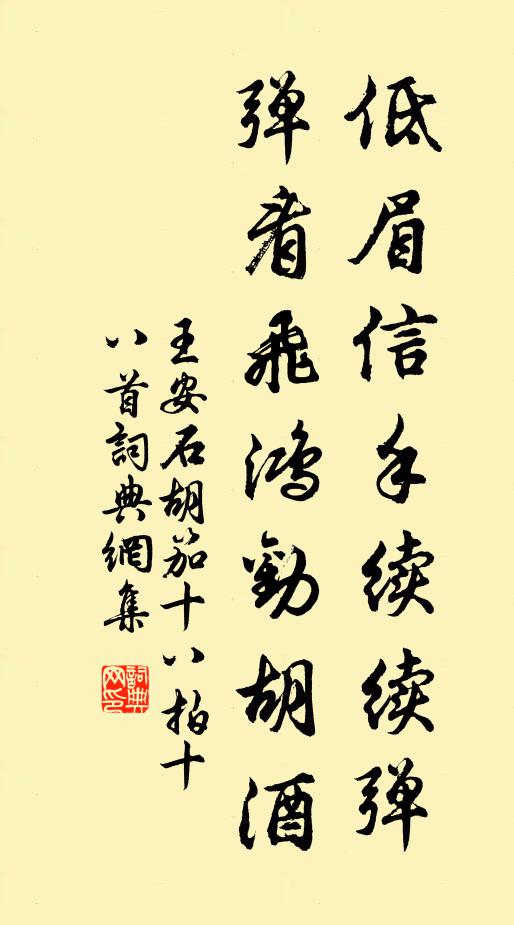 低眉信手续续弹
弹看飞鸿劝胡酒
王安石胡笳十八拍十
八首詞典網集
詞典
网印